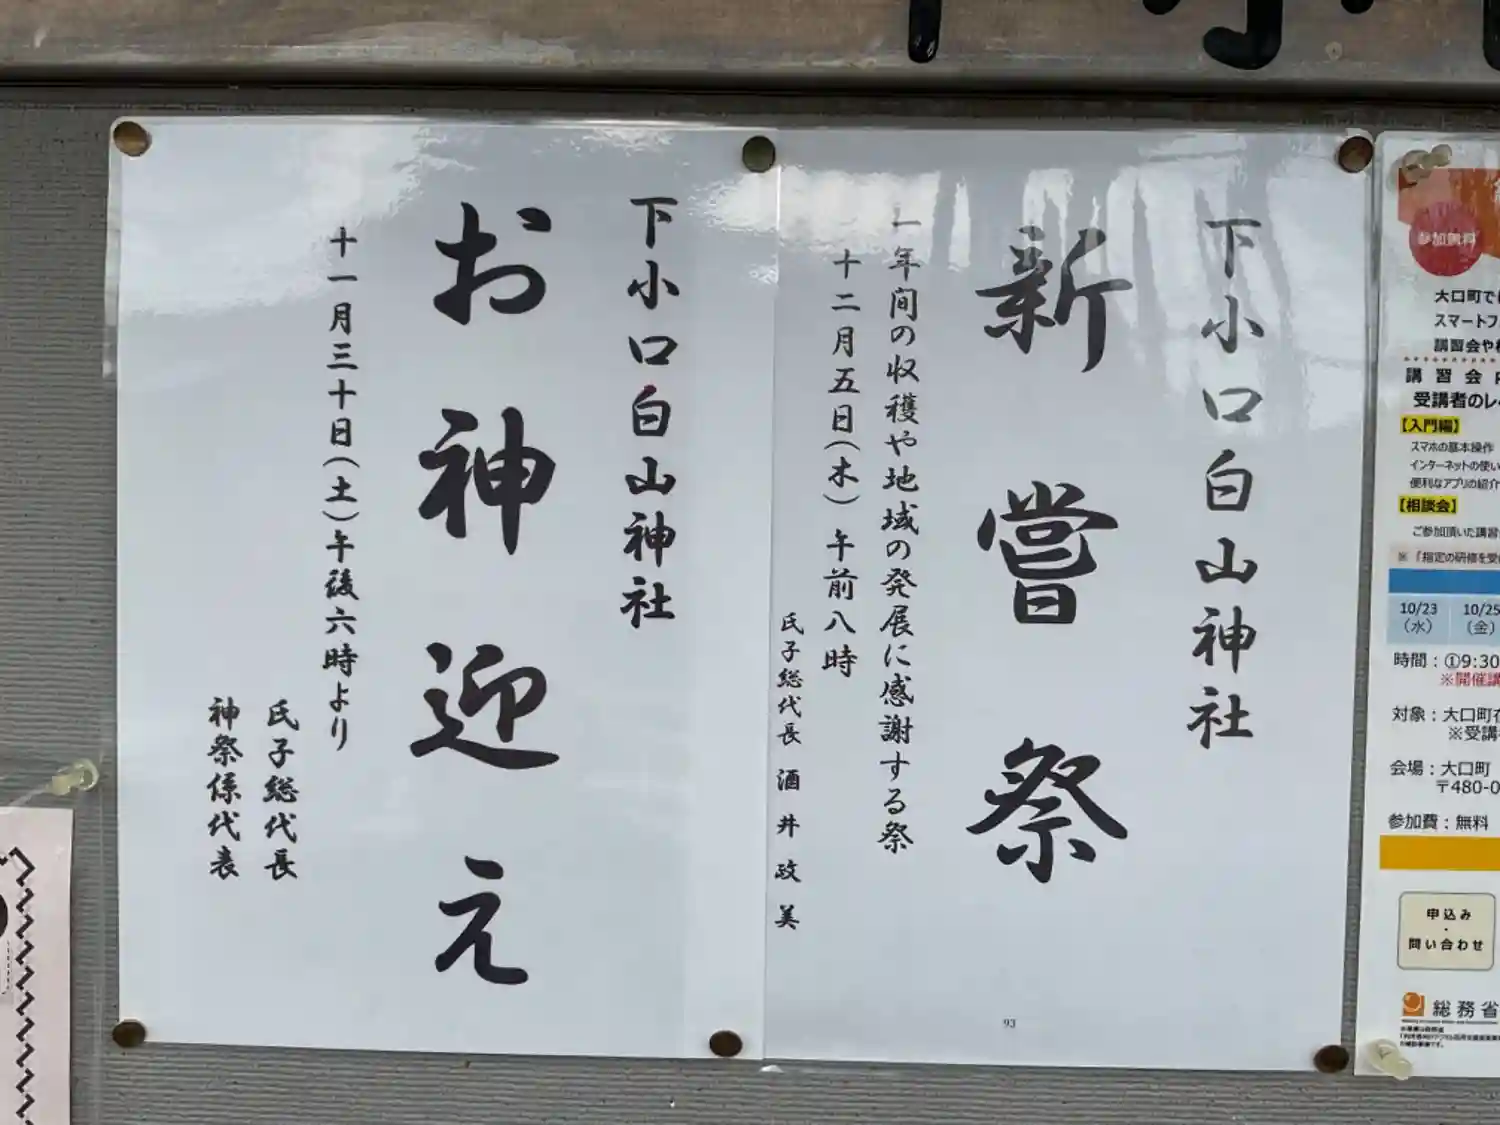 下小口白山神社
新嘗祭
一年間の収穫や地域の発展に感謝する祭
十二月五日(木)午前八時
氏子総代長 酒井政美
93
下小口白山神社
お神迎え
十一月三十日(土)午後六時より
氏子総代長
神祭係代表
参加無料
大口町で
スマートフ
講習会や
講習会
受講者のレ
【入門編】
スマホの基本操作
インターネットの使い
便利なアプリの紹介
【相談会】
ご参加頂いた講習
※「指定の研修を受
10/23
(水)
10/25
(金)
時間:①9:30
※開催講
対象:大口町在
※受講
会場:大口町
〒480-0
参加費:無料
申込み
・
問い合わせ
総務省